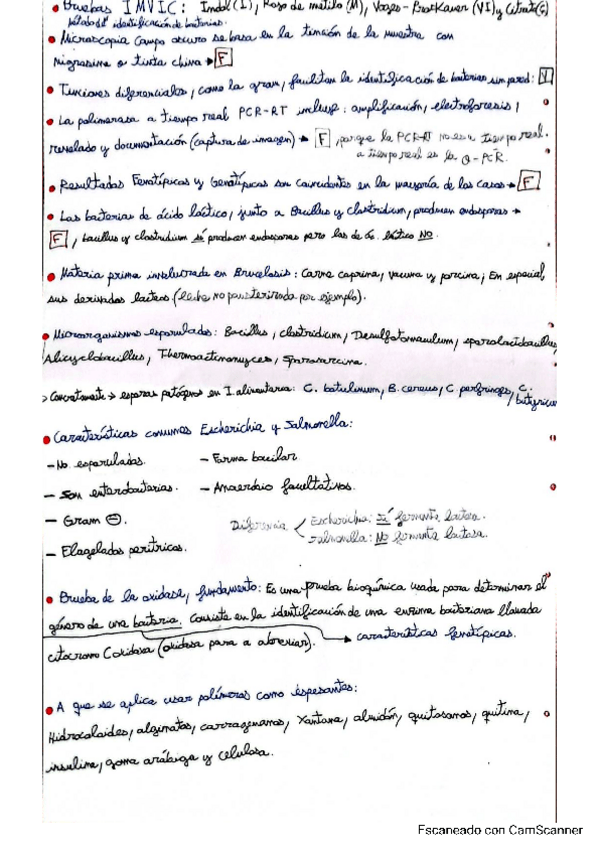 • Pruebas IMVIC: Indol (I), Rojo de metilo (M), Voges-Proskauer (VI) y Citrato(C)
identificación de bacterias.
• Microscopía Campo oscuro se basa en la tinción de la muestra con
nigrosina o tinta china → F
• Tinciones diferenciales, como la gram, facilitan la identificación de bacterias sin pared: V
• La polimerasa a tiempo real PCR-RT incluye: amplificación, electroforesis,
revelado y documentación (captura de imagen) → F, porque la PCR-RT no es a tiempo real.
a tiempo real es la Q-PCR.
• Resultados Fenotípicos y Genotípicos son coincidentes en la mayoría de los casos → F
• Las bacterias de ácido láctico, junto a Bacillus y clostridium, producen endosporas →
F, bacillus y clostridium sí producen endosporas pero las de ác. láctico NO.
• Materia prima involucrada en Brucelosis: Carne caprina, vacuna y porcina; En especial
sus derivados lacteos. (leche no pausterizada por ejemplo).
• Microorganismos esporulados: Bacillus, clostridium, Desulfotomaculum, sporolactobacillus,
Alicyclobacillus, Thermoactinomyces, Sporosarcina.
> Concretamente → esporas patógenos en I. alimentaria: C. botulinum, B. cereus, C perfringes, C.
butyricum
• Características comunes Escherichia y Salmonella:
- No esporuladas. - Forma bacilar
- Son enterobacterias. - Anaerobio facultativos.
- Gram ⊖. Diferencia < Escherichia: Sí fermenta lactosa.
Salmonella: No fermenta lactosa.
- Flagelados perítricos.
• Prueba de la oxidasa, fundamento: Es una prueba bioquímica usada para determinar el
género de una bacteria. Consiste en la identificación de una enzima bacteriana llamada
citocromo C oxidasa (oxidasa para abreviar). → características fenotípicas.
• A que se aplica usar polímeros como espesantes:
Hidrocoloides, alginatos, carragenanos, Xantana, almidón, quitosanos, quitina,
insulina, goma arábiga y celulosa.
Escaneado con CamScanner